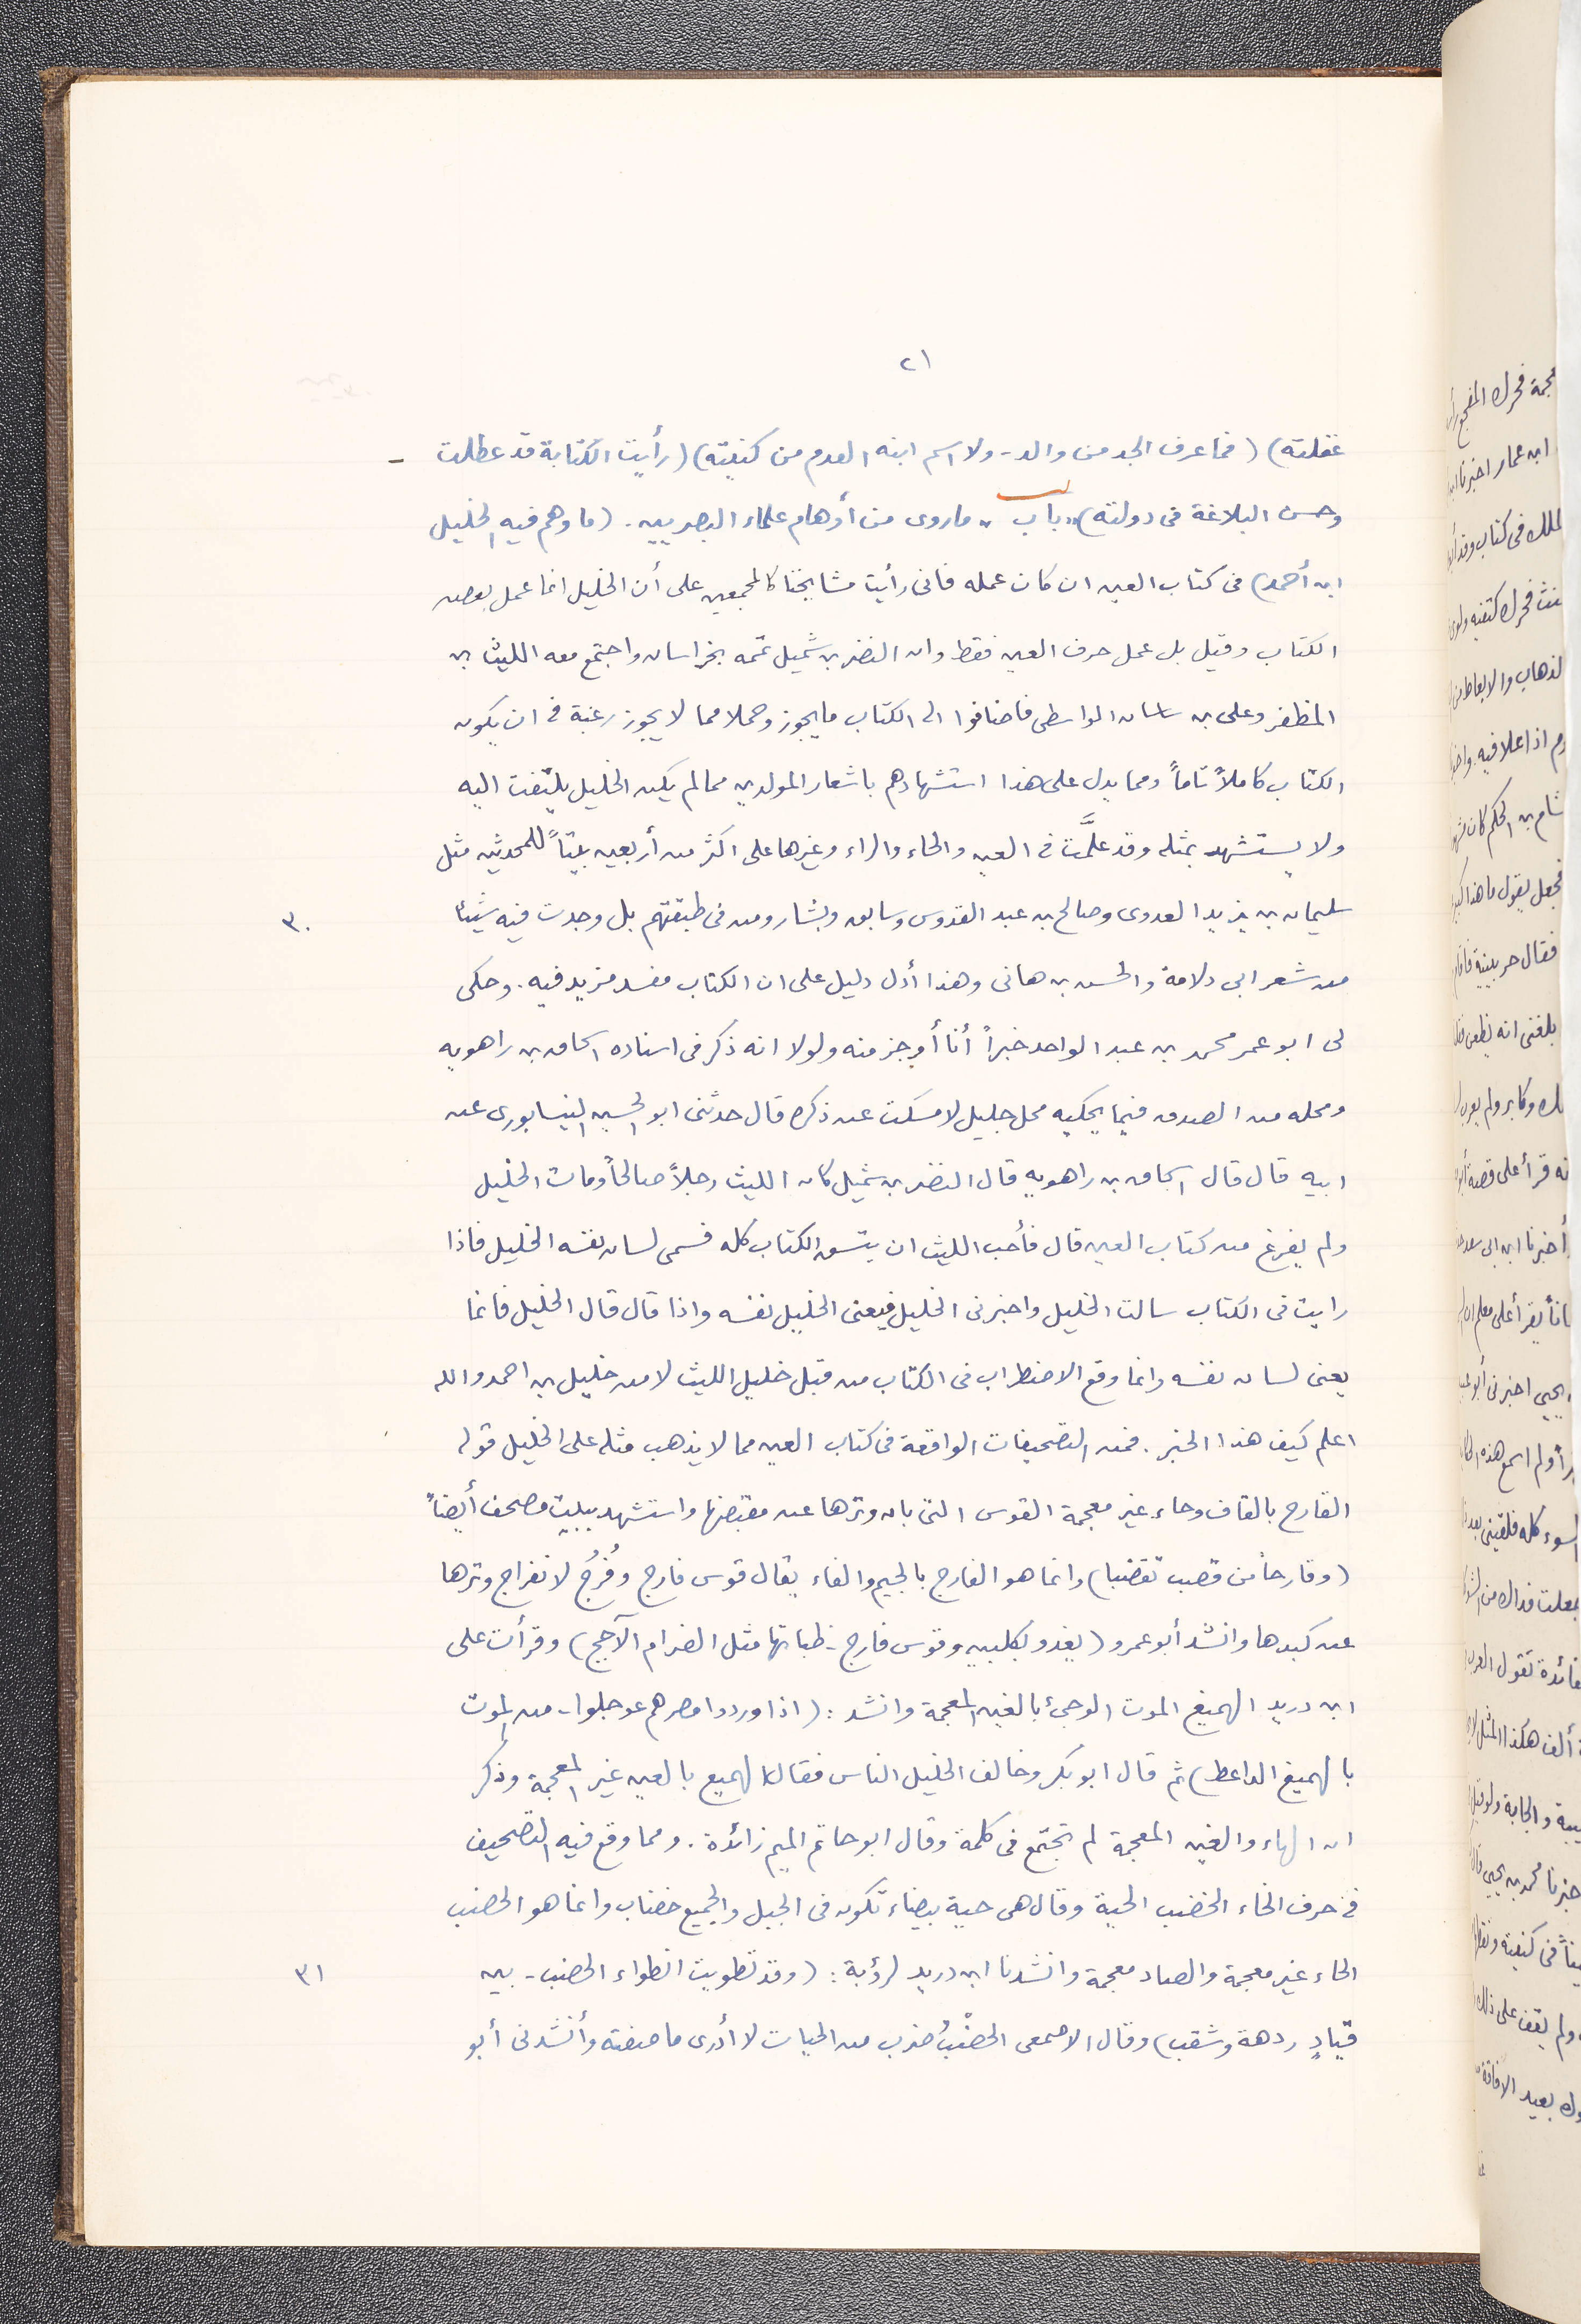 ٢١
غفلته) (فما عرف الجد من والد - ولا اسم ابنه القدم من كنيته) (رأيت الكتابة قد عطلت -
وحسن البلاغة فى دولته) «باب» ما روى من أوهام علماء البصريين. (ما وهم فيه الخليل
ابن أحمد) فى كتاب العين ان كان عمله فانى رأيت مشايخنا كالمجمعين على أن الخليل انما عمل بعض
الكتاب وقيل بل عمل حرف العين فقط وان النضر بن شميل تممه بخراسان واجتمع معه الليث بن
المظفر وعلى بن ساسان الواسطى فاضافوا الى الكتاب ما يجوز وحملا مما لا يجوز رغبة فى ان يكون
الكتاب كاملاً تاماً ومما يدل على هذا استشهادهم باشعار المولدين مما لم يكن الخليل يلتفت اليه
ولا يستشهد بمثله وقد علَّمت فى العين والحاء والراء وغيرها على اكثر من أربعين بيتاً للمحدثين مثل
سليمان بن يزيد العدوى وصالح بن عبد القدوس وسابق وبشار ومن فى طبقتهم بل وجدت فيه شيئا
٣٠
من شعر ابى دلامة والحسن بن هانى وهذا أدل دليل على ان الكتاب مفسد مزيد فيه. وحكى
لى ابو عمر محمد بن عبد الواحد خبراً أنا أوجز منه ولولا انه ذكر فى اسناده اسحاق بن راهويه
ومحله من الصدق فيما يحكيه محل جليل لامسكت عن ذكره قال حدثنى ابو الحسين النيسابورى عن
ابيه قال قال اسحاق بن راهويه قال النضر بن شميل كان الليث رجلاً صالحاً ومات الخليل
ولم يفرغ من كتاب العين قال فأحب الليث ان يتسق الكتاب كله فسمى لسان نفسه الخليل فاذا
رايت فى الكتاب سالت الخليل واخبرنى الخليل فيعنى الخليل نفسه واذا قال قال الخليل فانما
يعنى لسان نفسه وانما وقع الاضطراب فى الكتاب من قبل خليل الليث لا من خليل بن احمد والله
اعلم كيف هذا الخبر. فمن التصحيفات الواقعة فى كتاب العين مما لا يذهب مثله على الخليل قوله
القارح بالقاف وحاء غير معجمة القوس التى بان وترها عن مقبضها واستشهد ببيت مصحف أيضاً
(وقارحاً من قضب تقضبا) وانما هو الفارج بالجيم والفاء يقال قوس فارج وفُرُج لانفراج وترها
عن كبدها وانشد أبو عمرو (يغدو بكلبين وقوس فارج - ظباتها مثل الضرام الآجج) وقرأت على
ابن دريد الهميغ الموت الوحىّ بالغين المعجمة وانشد: (اذا وردوا مصرهم عوجلوا - من الموت
بالهميغ الذاعط) ثم قال ابو بكر وخالف الخليل الناس فقال الهميع بالعين غير المعجمة وذكر
ان الهاء والغين المعجمة لم تجتمع فى كلمة وقال ابو حاتم الميم زائدة. ومما وقع فيه التصحيف
فى حرف الخاء الخضب الحية وقال هى حية بيضاء تكون فى الجبل والجميع خضاب وانما هو الحضب
الحاء غير معجمة والضاد معجمة وانشدنا ابن دريد لرؤبة: (وقد تطويت انطواء الحضب - بين
٣١
قتادِ ردهة وشقب) وقال الاصمعى الحضْبُ ضرب من الحيات لا أدرى ما صفته وأنشدنى أبو